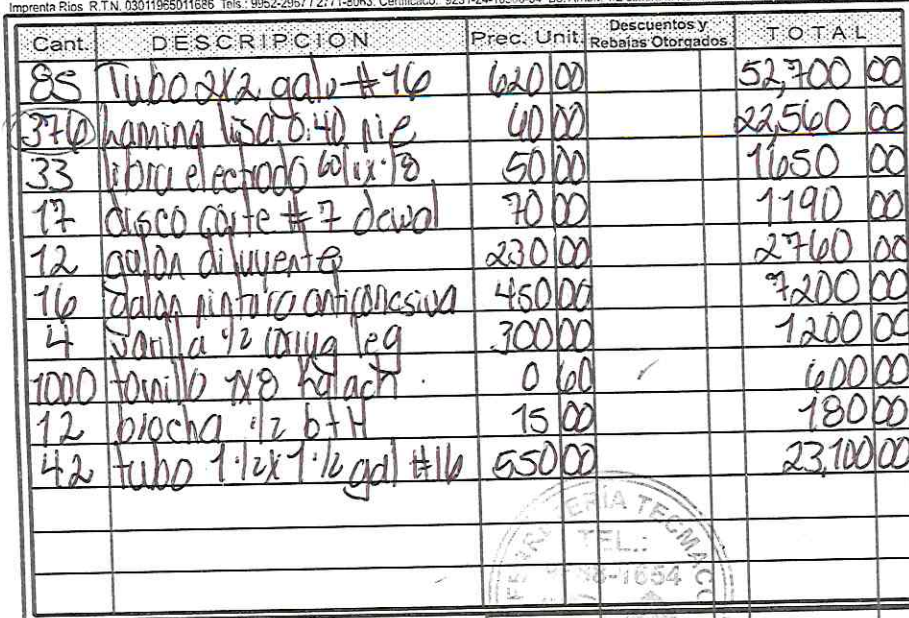 Imprenta Rios R.T.N. 03011965011686 Tels.: 9952-2967 / 2771-8063. Certificado:
Cant. DESCRIPCION Prec. Unit. Descuentos y Rebajas Otorgados TOTAL
85 Tubo 2x2 galv #16 620 00 52,700 00
376 lamina lisa 0.40 pie 60 00 22,560 00
33 libra electrodo 60 1x 18 50 00 1650 00
17 disco corte #7 dewal 70 00 1190 00
12 galon diluyente 230 00 2760 00
16 galon pintura anticorrosiva 450 00 7200 00
4 varilla 1/2 leg 300 00 1200 00
1000 tornillo 1x8 0 60 600 00
12 brocha 1/2 b+H 15 00 180 00
42 tubo 1.1/2x1.1/2 gal #16 550 00 23,100 00
TECMACO
TEL.:
-1654